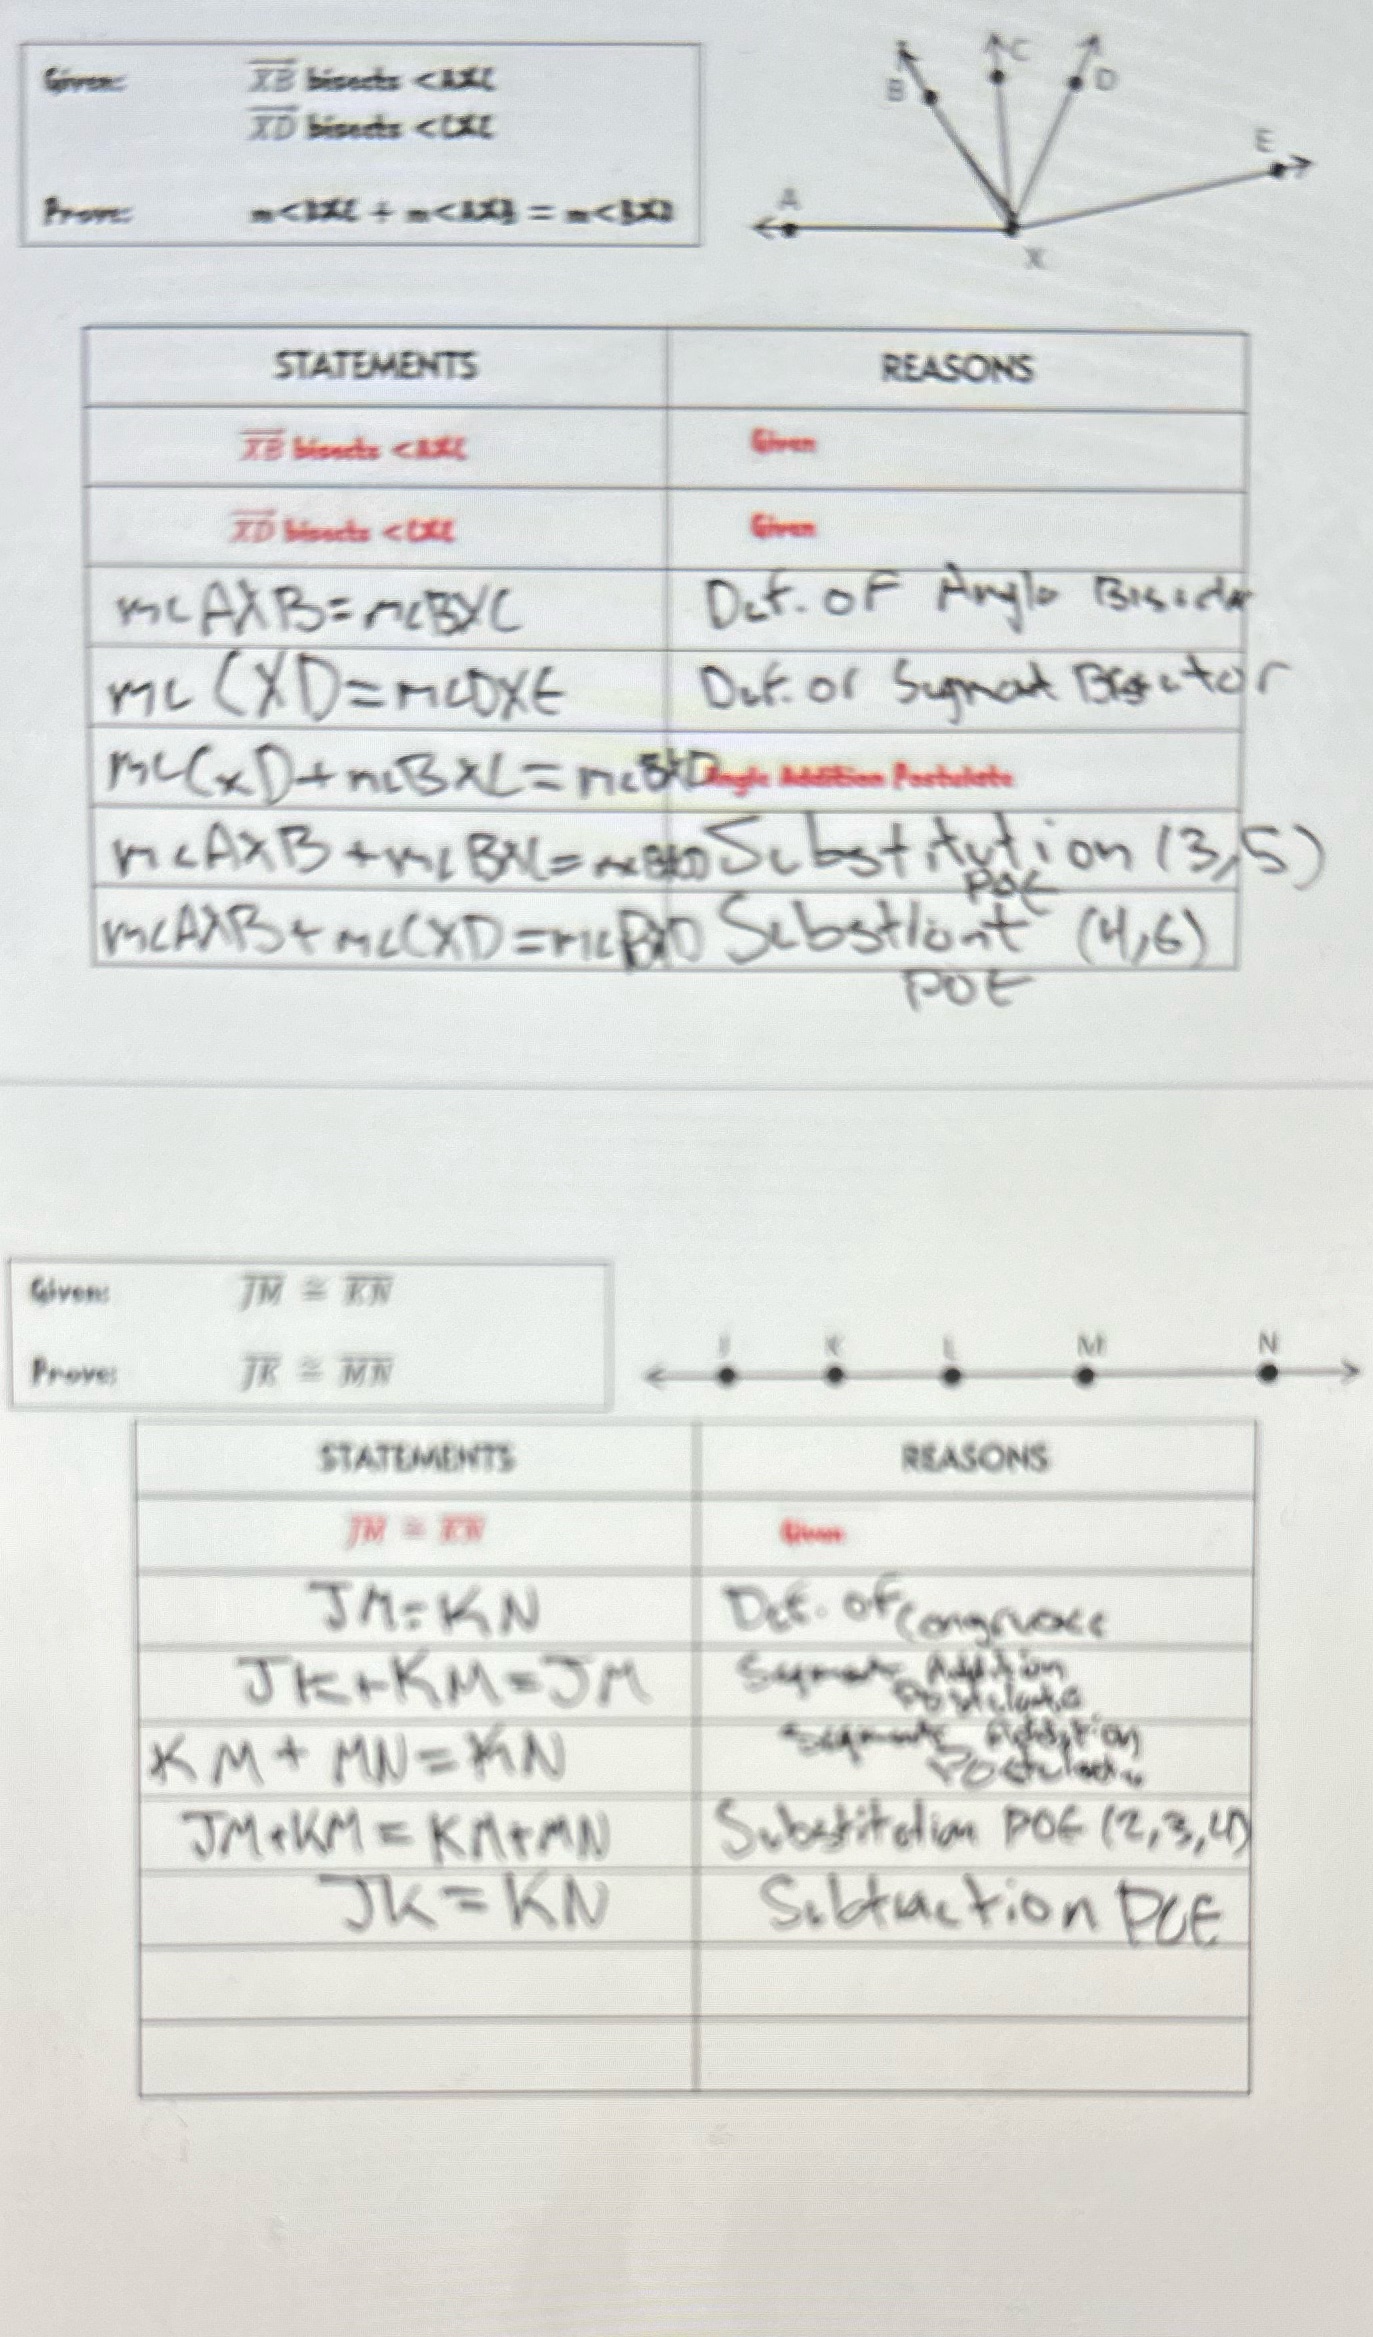 Given: XB bisects <AXC
XD bisects <CXE
Prove: m<DXE + m<AXB = m<BXD
B C D E A X
STATEMENTS REASONS
XB bisects <AXC Given
XD bisects <CXE Given
m∠AXB=m∠BXC Def. of Angle Bisector
m∠CXD=m∠DXE Def. of Segment Bisector
m∠CXD+m∠BXC=m∠BXD Angle Addition Postulate
m∠AXB+m∠BXC=m∠BXD Substitution (3,5)
POE
m∠AXB+m∠CXD=m∠BXD (4,6)
POE
Given: JM ≅ KN
Prove: JK ≅ MN
J K L M N
STATEMENTS REASONS
JM ≅ KN Given
JM=KN Def. of Congruence
JK+KM=JM Segment Addition
Postulate
KM+MN=KN Segment Addition
Postulate
JM+KM=KM+MN Substitution POE (2,3,4)
JK=KN Subtraction POE